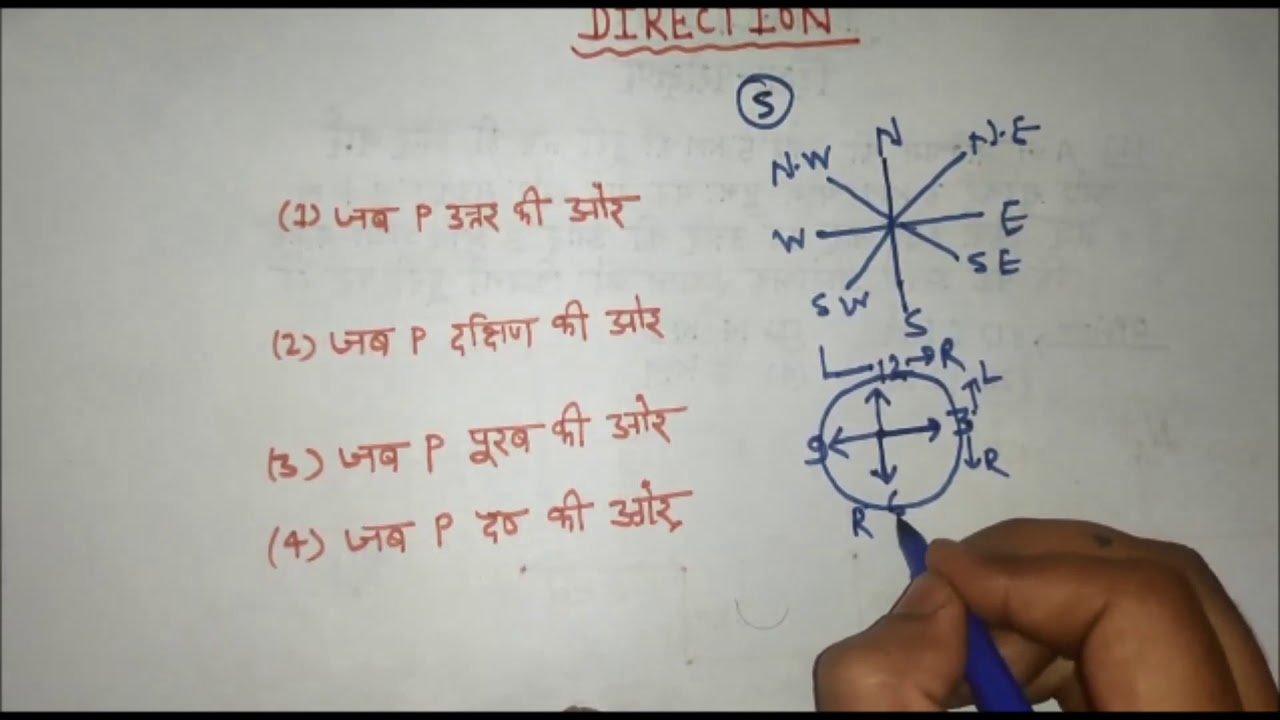 DIRECTION
S
N
N.E
N.W
E
W
S E
S W
S
(1) जब P उत्तर की ओर
(2) जब P दक्षिण की ओर
(3) जब P पूरब की ओर
(4) जब P की ओर
L 12 → R
L
3
9
R
R